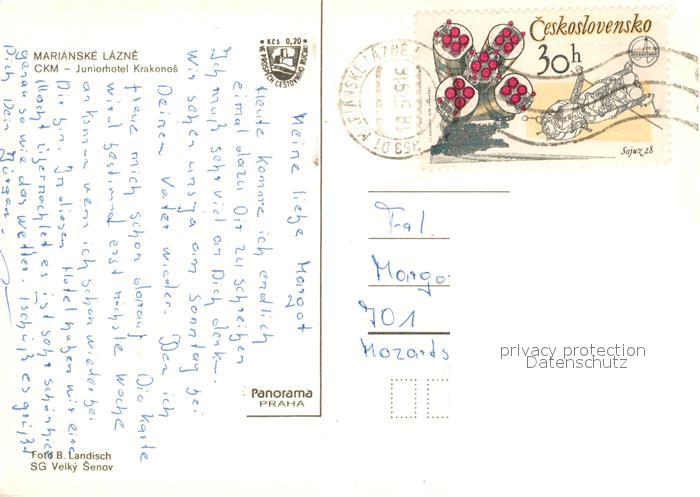 MARIÁNSKÉ LÁZNĚ
CKM – Juniorhotel Krakonoš
Kčs 0,20
Meine liebe Margot
Heute komme ich endlich
einmal dazu Dir zu schreiben
Ich muß sehr viel an Dich denken.
Wir sehen uns ja am Sonntag bei
Deinem Vater wieder. Den ich
freue mich schon darauf. Die Karte
wird bestimmt erst nächste Woche
ankommen wenn ich schon wieder bei
Dir bin. In diesem Hotel haben wir eine
Nacht übernachtet es ist sehr schön hier
genau so wie das Wetter. Tschüß es grüßt
Dich Dein Jürgen
Foto B. Landisch
SG Velký Šenov
Panorama
PRAHA
Československo
30h
Sojuz 28
353 01
Frl.
Margo
701
Mozarts
privacy protection
Datenschutz